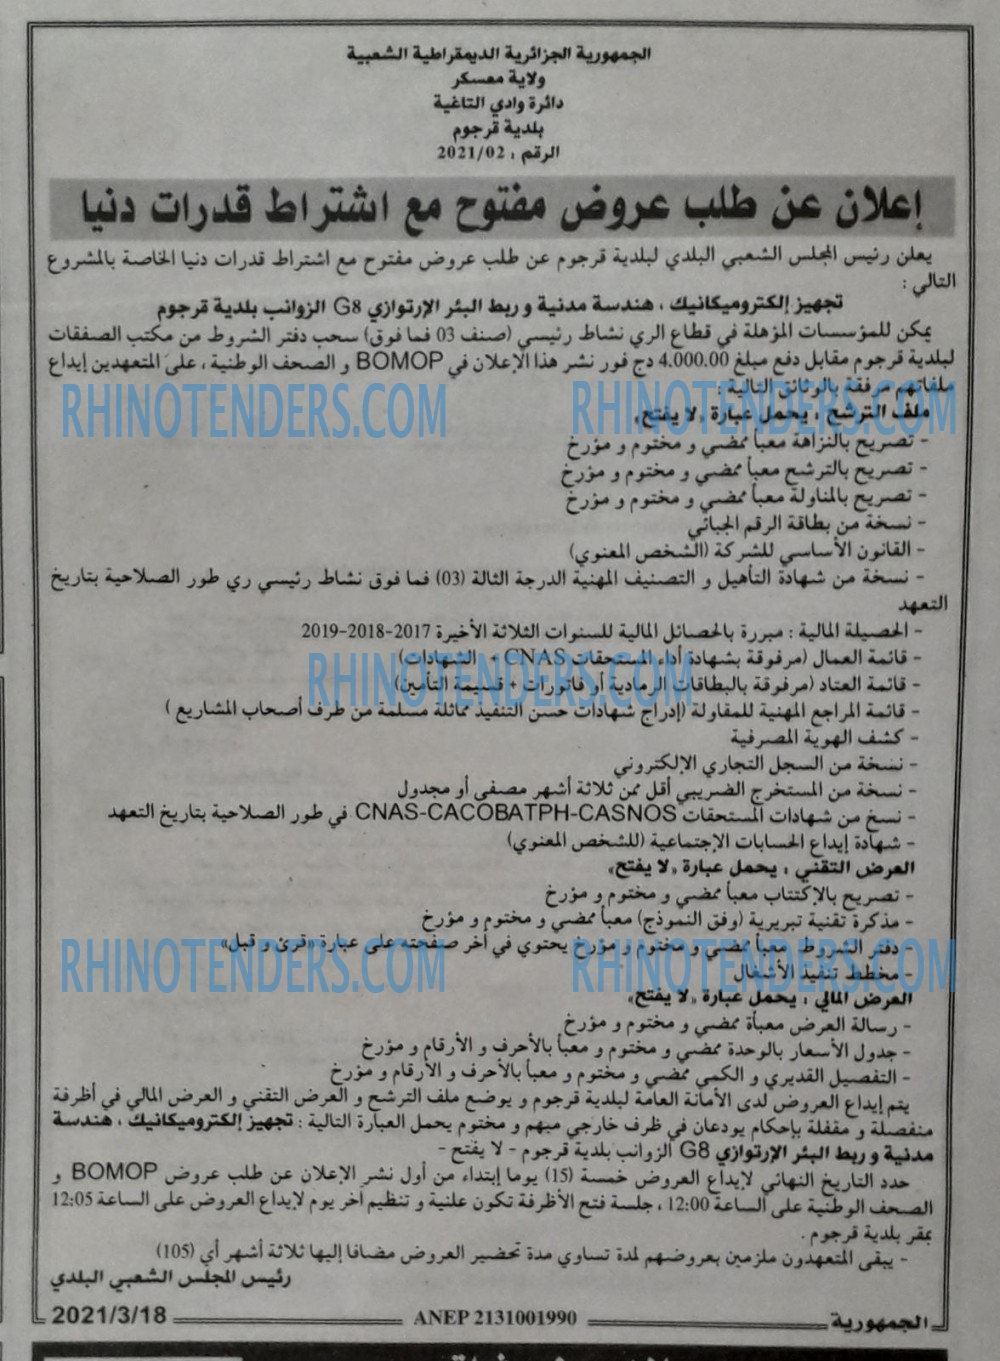 الجمهورية الجزائرية الديمقراطية الشعبية
ولاية معسكر
دائرة وادي التاغية
بلدية قرجوم
الرقم : 2021/02
إعلان عن طلب عروض مفتوح مع اشتراط قدرات دنيا
يعلن رئيس المجلس الشعبي البلدي لبلدية قرجوم عن طلب عروض مفتوح مع اشتراط قدرات دنيا الخاصة بالمشروع
التالي :
تجهيز إلكتروميكانيك ، هندسة مدنية و ربط البئر الإرتوازي G8 الزوانب بلدية قرجوم
يمكن للمؤسسات المؤهلة في قطاع الري نشاط رئيسي (صنف 03 فما فوق) سحب دفتر الشروط من مكتب الصفقات
لبلدية قرجوم مقابل دفع مبلغ 4.000.00 دج فور نشر هذا الإعلان في BOMOP و الصحف الوطنية ، على المتعهدين إيداع
ملفاتهم مرفقة بالوثائق التالية :
RHINOTENDERS.COM RHINOTENDERS.COM
ملف الترشح : يحمل عبارة «لا يفتح»
- تصريح بالنزاهة معبأ ممضي و مختوم و مؤرخ
- تصريح بالترشح معبأ ممضي و مختوم و مؤرخ
- تصريح بالمناولة معبأ ممضي و مختوم و مؤرخ
- نسخة من بطاقة الرقم الجبائي
- القانون الأساسي للشركة (الشخص المعنوي)
- نسخة من شهادة التأهيل و التصنيف المهنية الدرجة الثالة (03) فما فوق نشاط رئيسي ري طور الصلاحية بتاريخ
التعهد
- الحصيلة المالية : مبررة بالحصائل المالية للسنوات الثلاثة الأخيرة 2017-2018-2019
- قائمة العمال (مرفوقة بشهادة أداء المستحقات CNAS + الشهادات)
RHINOTENDERS.COM
- قائمة العتاد (مرفوقة بالبطاقات الرمادية أو فاتورات + قسيمة التأمين)
- قائمة المراجع المهنية للمقاولة (إدراج شهادات حسن التنفيذ مماثلة مسلمة من طرف أصحاب المشاريع )
- كشف الهوية المصرفية
- نسخة من السجل التجاري الإلكتروني
- نسخة من المستخرج الضريبي أقل ممن ثلاثة أشهر مصفى أو مجدول
- نسخ من شهادات المستحقات CNAS-CACOBATPH-CASNOS في طور الصلاحية بتاريخ التعهد
- شهادة إيداع الحسابات الإجتماعية (للشخص المعنوي)
العرض التقني : يحمل عبارة «لا يفتح»
- تصريح بالإكتتاب معبأ ممضي و مختوم و مؤرخ
- مذكرة تقنية تبريرية (وفق النموذج) معبأ ممضي و مختوم و مؤرخ
- دفتر الشروط معبأ ممضي و مختوم و مؤرخ يحتوي في آخر صفحته على عبارة «قرئ و قبل»
RHINOTENDERS.COM RHINOTENDERS.COM
- مخطط تنفيذ الأشغال
العرض المالي : يحمل عبارة «لا يفتح»
- رسالة العرض معبأة ممضي و مختوم و مؤرخ
- جدول الأسعار بالوحدة ممضي و مختوم و معبأ بالأحرف و الأرقام و مؤرخ
- التفصيل القديري و الكمي ممضي و مختوم و معبأ بالأحرف و الأرقام و مؤرخ
يتم إيداع العروض لدى الأمانة العامة لبلدية قرجوم و يوضع ملف الترشح و العرض التقني و العرض المالي في أظرفة
منفصلة و مقفلة بإحكام يودعان في ظرف خارجي مبهم و مختوم يحمل العبارة التالية : تجهيز إلكتروميكانيك ، هندسة
مدنية و ربط البئر الإرتوازي G8 الزوانب بلدية قرجوم - لا يفتح -
حدد التاريخ النهائي لإيداع العروض خمسة (15) يوما إبتداء من أول نشر الإعلان عن طلب عروض BOMOP و
الصحف الوطنية على الساعة 12:00 ، جلسة فتح الأظرفة تكون علنية و تنظيم آخر يوم لإيداع العروض على الساعة 12:05
بمقر بلدية قرجوم .
- يبقى المتعهدون ملزمين بعروضهم لمدة تساوي مدة تحضير العروض مضافا إليها ثلاثة أشهر أي (105)
رئيس المجلس الشعبي البلدي
الجمهورية ANEP 2131001990 2021/3/18